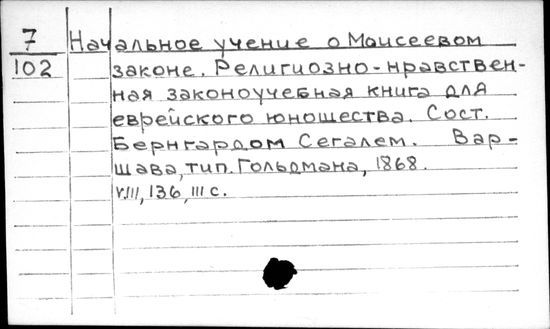 7
102
Начальное учение о Моисеевом
законе. Религиозно-нравствен-
ная законоучебная книга для
еврейского юношества. Сост.
Бернгардом Сегалем. Вар-
шава, тип. Гольдмана, 1868.
VIII, 136, III с.